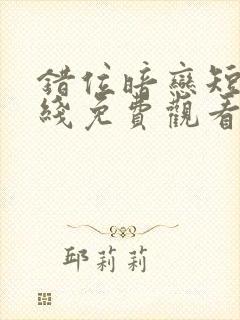 錯位暗戀短
綫免費觀看
邱莉莉